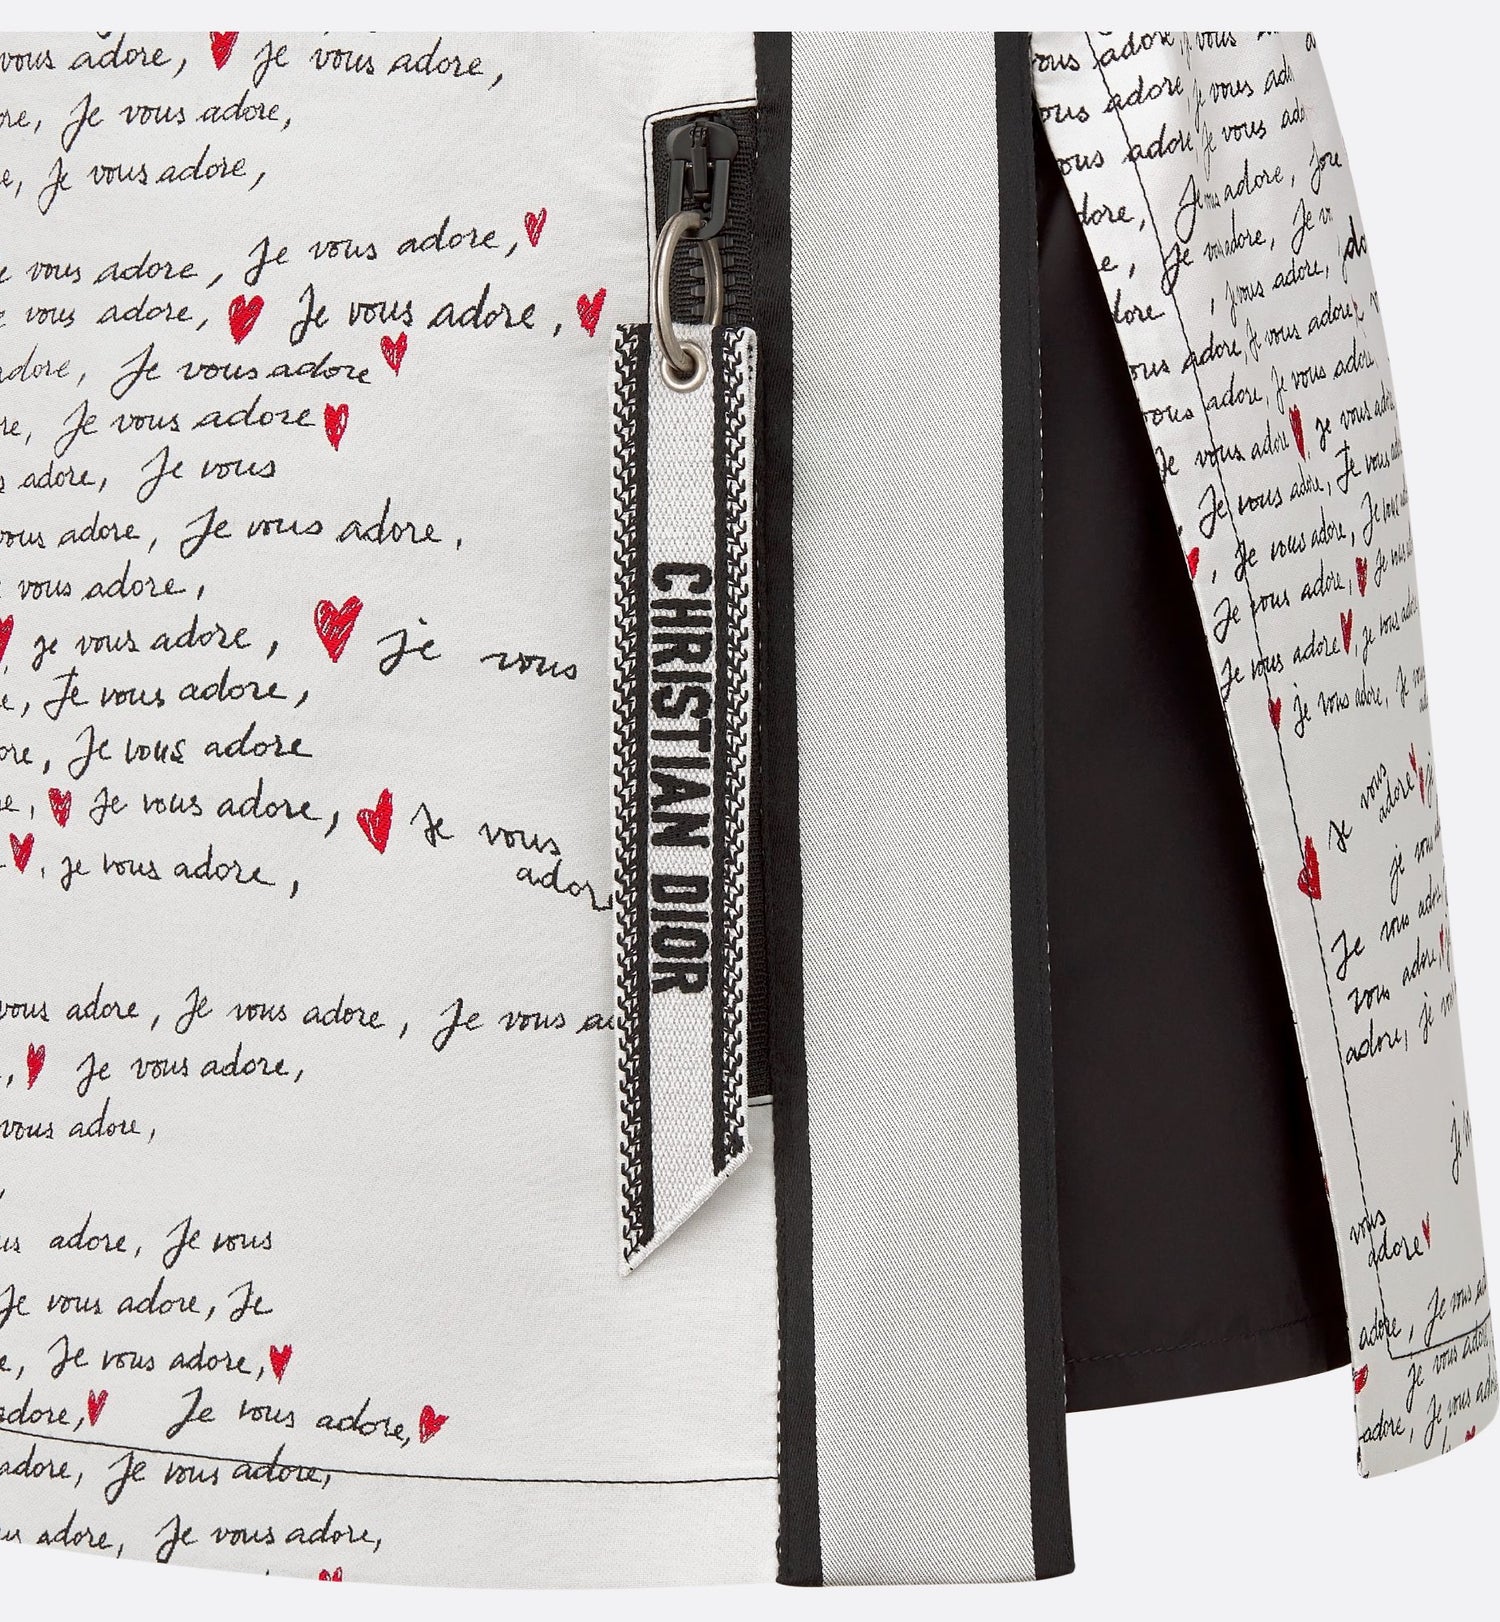 vous adore, Je vous adore,
Je vous adore,
Je vous adore,
vous adore, Je vous adore,
vous adore, Je vous adore,
adore, Je vous adore
Je vous adore
adore, Je vous
vous adore, Je vous adore,
vous adore,
je vous adore, je vous
Je vous adore,
Je vous adore
Je vous adore, Je vous
adore,
je vous adore,
vous adore, Je vous adore, Je vous
Je vous adore,
vous adore,
adore, Je vous
Je vous adore, Je
Je vous adore,
adore, Je vous adore,
adore, Je vous adore,
adore, Je vous adore,
CHRISTIAN DIOR
vous adore, vous
vous adore, je vous
vous adore, Je vous
adore, Je adore,
Je adore, Je
adore,
vous adore, Je vous adore
vous adore, Je vous adore,
Je vous adore, je vous
Je vous adore, Je vous
Je vous adore, Je vous
Je vous adore, Je vous
Je vous adore, Je vous
je vous adore, Je
Je vous
adore
je vous
Je vous
vous adore,
adore, je
vous
adore
adore, Je vous
Je vous adore,
adore, Je vous